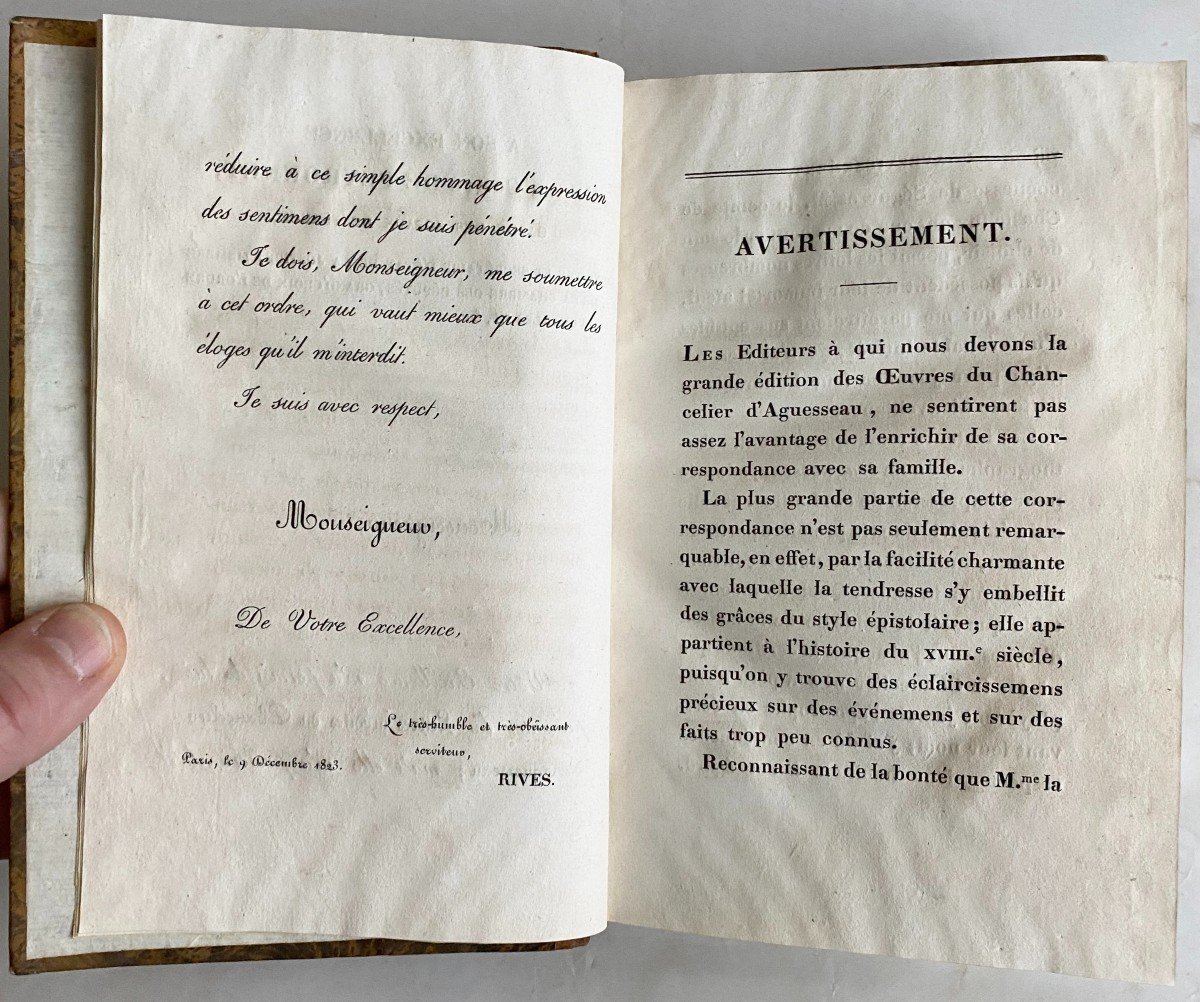 réduire à ce simple hommage l'expression
des sentimens dont je suis pénétré.
Je dois, Monseigneur, me soumettre
à cet ordre, qui vaut mieux que tous les
éloges qu'il m'interdit.
Je suis avec respect,
Monseigneur,
De Votre Excellence,
Le très-humble et très-obéissant
serviteur,
Paris, le 9 Décembre 1823.
RIVES.
AVERTISSEMENT.
LES Editeurs à qui nous devons la
grande édition des Œuvres du Chan-
celier d'Aguesseau, ne sentirent pas
assez l'avantage de l'enrichir de sa cor-
respondance avec sa famille.
La plus grande partie de cette cor-
respondance n'est pas seulement remar-
quable, en effet, par la facilité charmante
avec laquelle la tendresse s'y embellit
des grâces du style épistolaire; elle ap-
partient à l'histoire du XVIII.e siècle,
puisqu'on y trouve des éclaircissemens
précieux sur des événemens et sur des
faits trop peu connus.
Reconnaissant de la bonté que M.me la